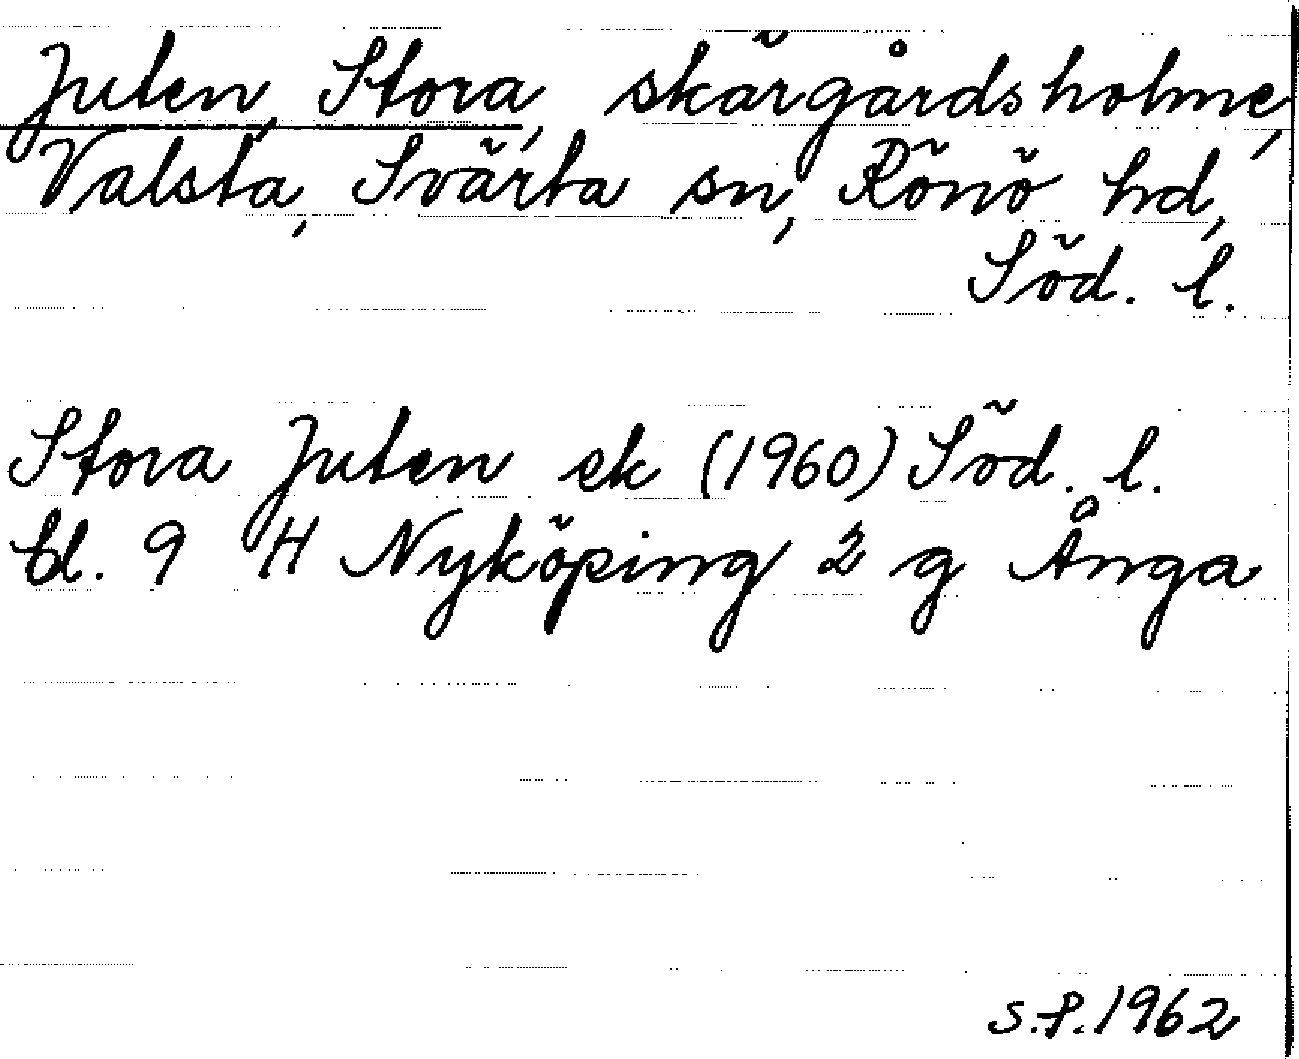 Juten, Stora, skärgårdsholme,
Valsta, Svärta sn, Rönö hd,
Söd. l.
Stora Juten ek (1960) Söd. l.
bl. 9 H Nyköping 2 g Ånga
s.f. 1962